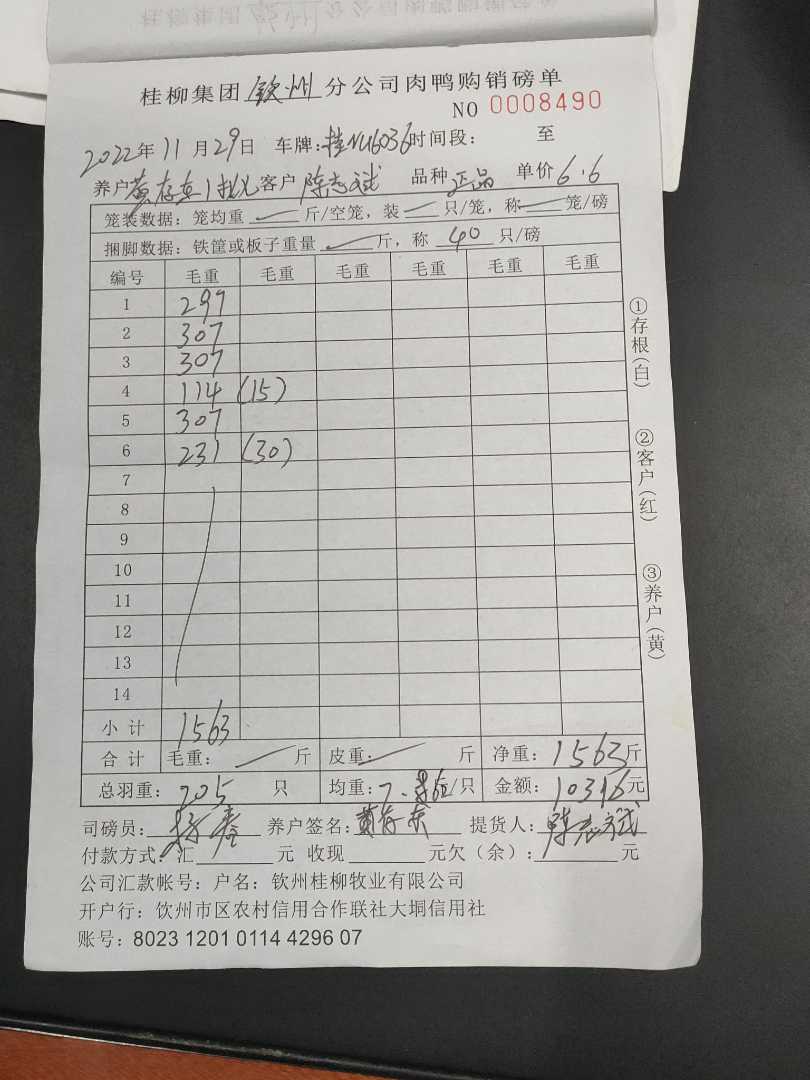 桂柳集团 钦州 分公司肉鸭购销磅单
NO 0008490
2022年11月29日 车牌:桂NU6036时间段: 至
养户黄存东1批 客户陈志斌 品种正品 单价6.6
笼装数据:笼均重 斤/空笼,装 只/笼,称 笼/磅
捆脚数据:铁筐或板子重量 斤,称 40 只/磅
编号 毛重 毛重 毛重 毛重 毛重 毛重
1 297
2 307
3 307
4 114 (15)
5 307
6 231 (30)
7
8
9
10
11
12
13
14
小计 1563
合计 毛重: 斤 皮重: 斤 净重:1563斤
总羽重:205 只 均重:7. /只 金额:10316元
司磅员: 养户签名:黄存东 提货人:陈志斌
付款方式:汇 元 收现 元欠(余): 元
公司汇款帐号:户名:钦州桂柳牧业有限公司
开户行:饮州市区农村信用合作联社大垌信用社
账号:8023 1201 0114 4296 07
①存根(白)
②客户(红)
③养户(黄)